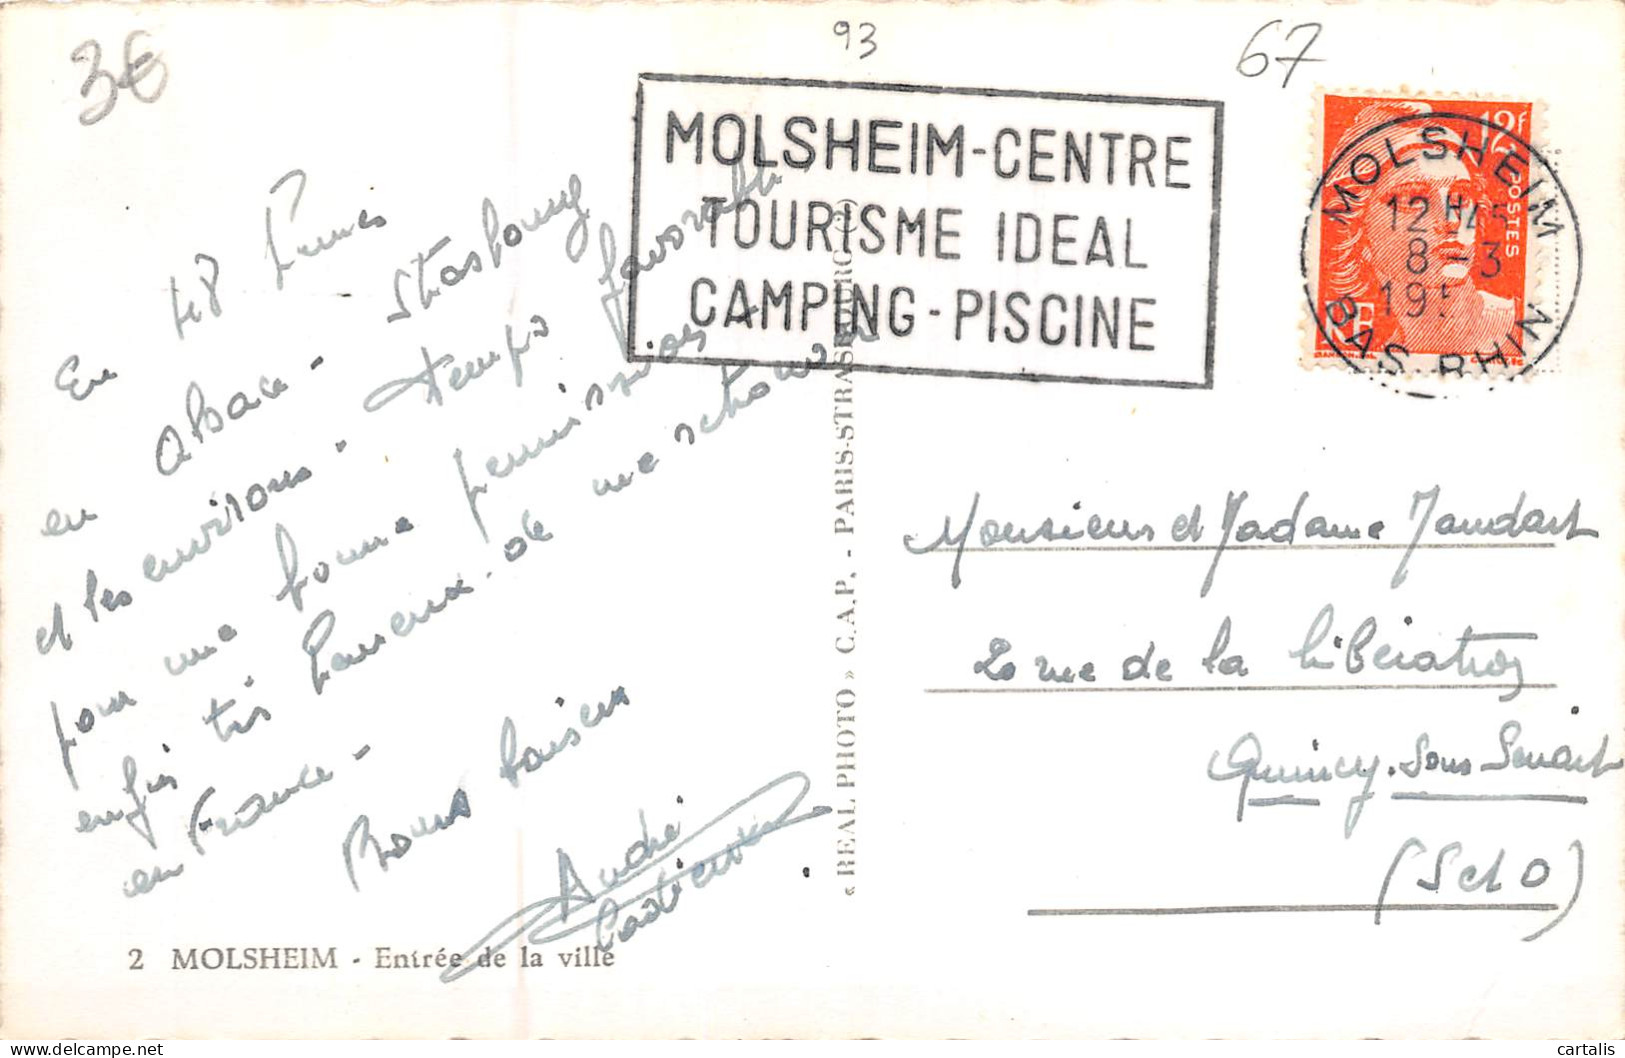 3€
93
67
MOLSHEIM-CENTRE
TOURISME IDEAL
CAMPING-PISCINE
12F
POSTES
RF
MOLSHEIM
12H45
8-3
195
BAS-RHIN
En 48 heures
en Alsace - Strasbourg
et les environs. temps favorable
pour une bonne permission
enfin très heureux de me retrouver
en France -
Bons baisers
André
2 MOLSHEIM - Entrée de la ville
« REAL PHOTO » C.A.P. - PARIS-STRASBOURG
Monsieur et Madame
20 rue de la Libération
Quincy-Sous-Senart
(S et O)
cartalis